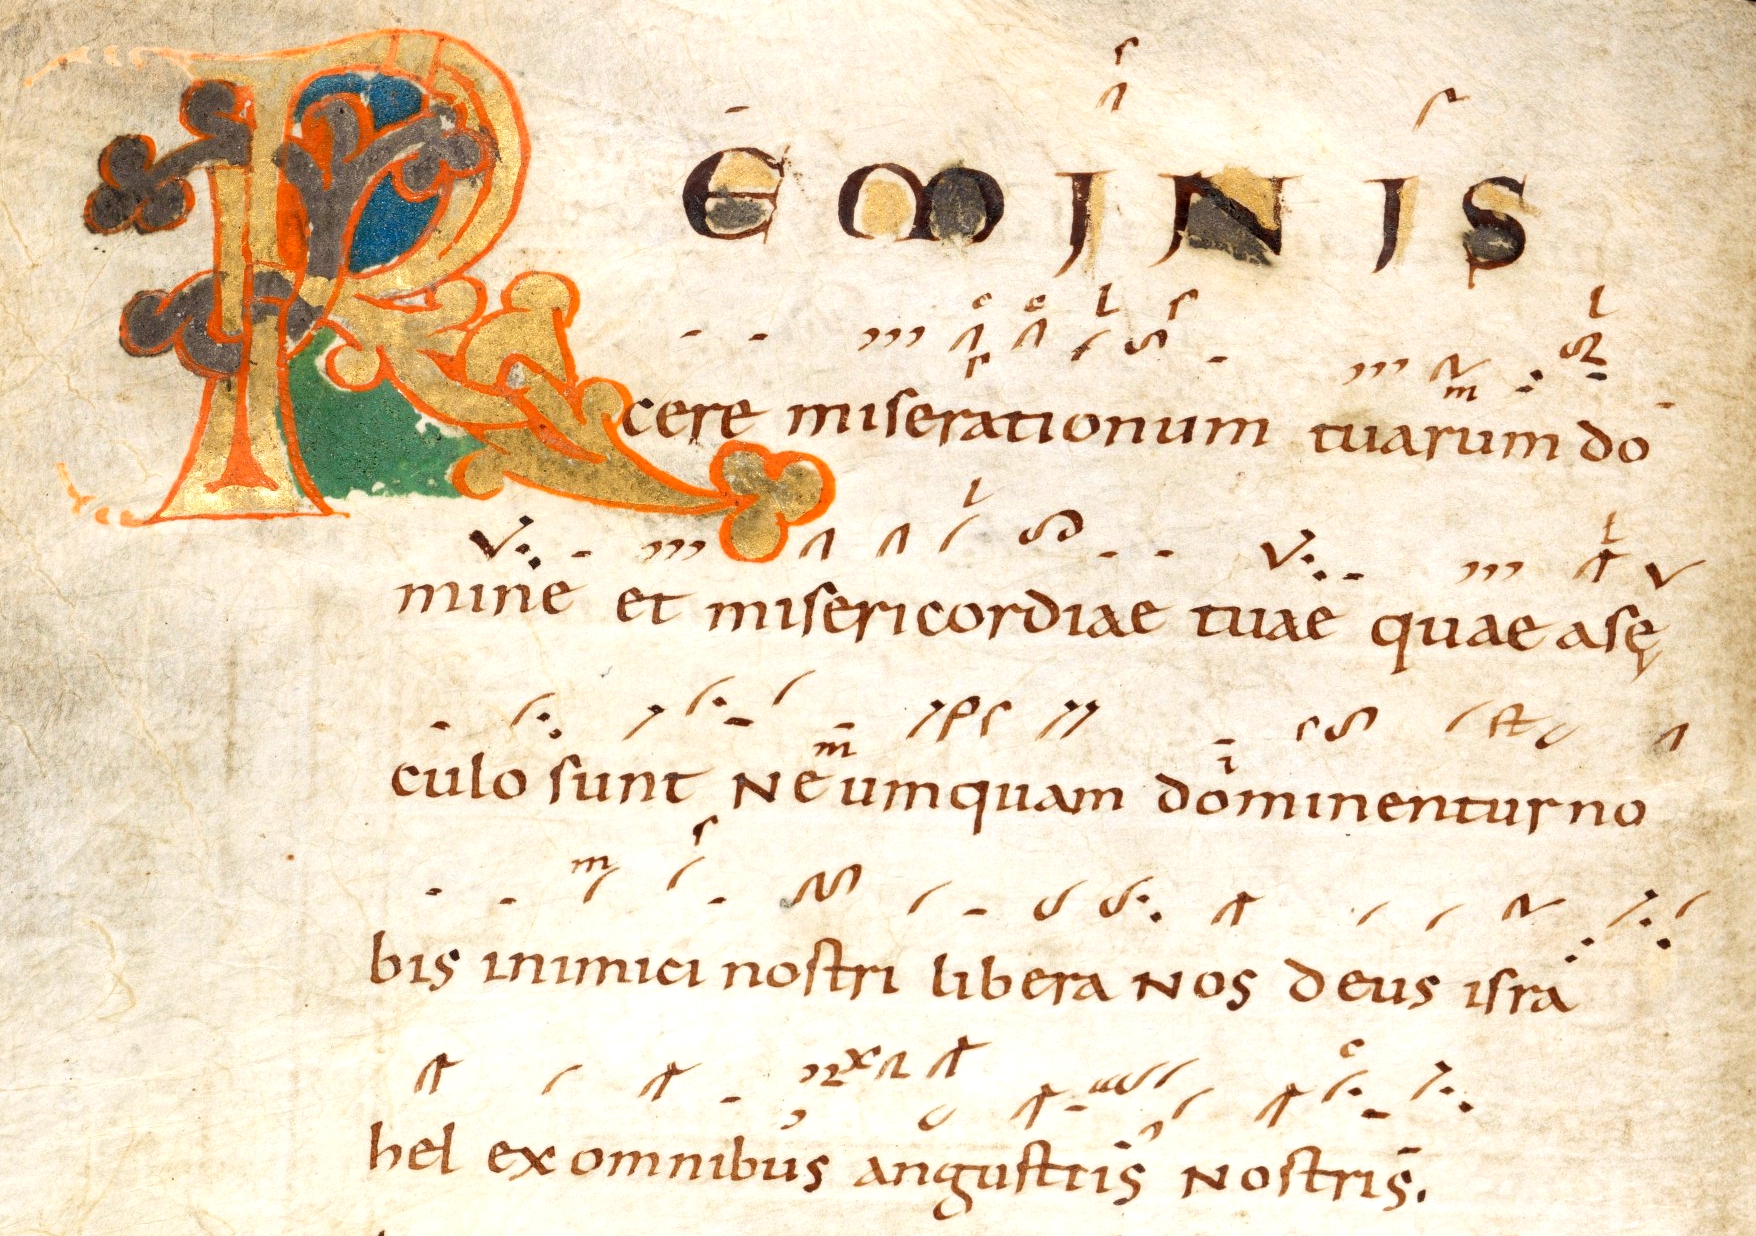 REMINIS
cere miserationum tuarum do
mine et misericordiae tuae quae a sę
culo sunt Ne umquam dominentur no
bis inimici nostri libera nos deus isra
hel ex omnibus angustiis nostris.